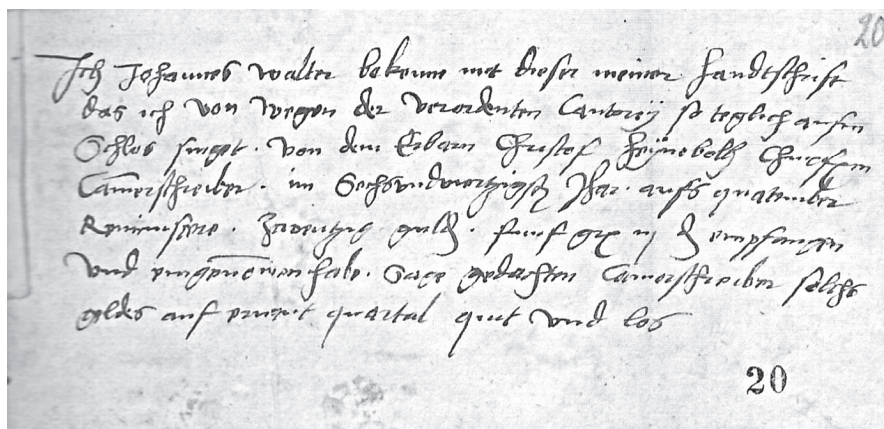 20
Ich Johannes Walter bekenne mit dieser meiner handtschrift
das ich von wegen der verordenten Cantorey so teglich aufm
Schlos singet. von dem Erbarn Christof Heÿnebolh Churf
Camerschreiber. im Sechsundviertzigsth Jhar. aufs quatember
Reminiscere. zwentzig guld. funf gr iij d empfangen
und eingenomen habe. Sage gedachten Camerschreiber solchs
geldes auf quartal quit und los
20